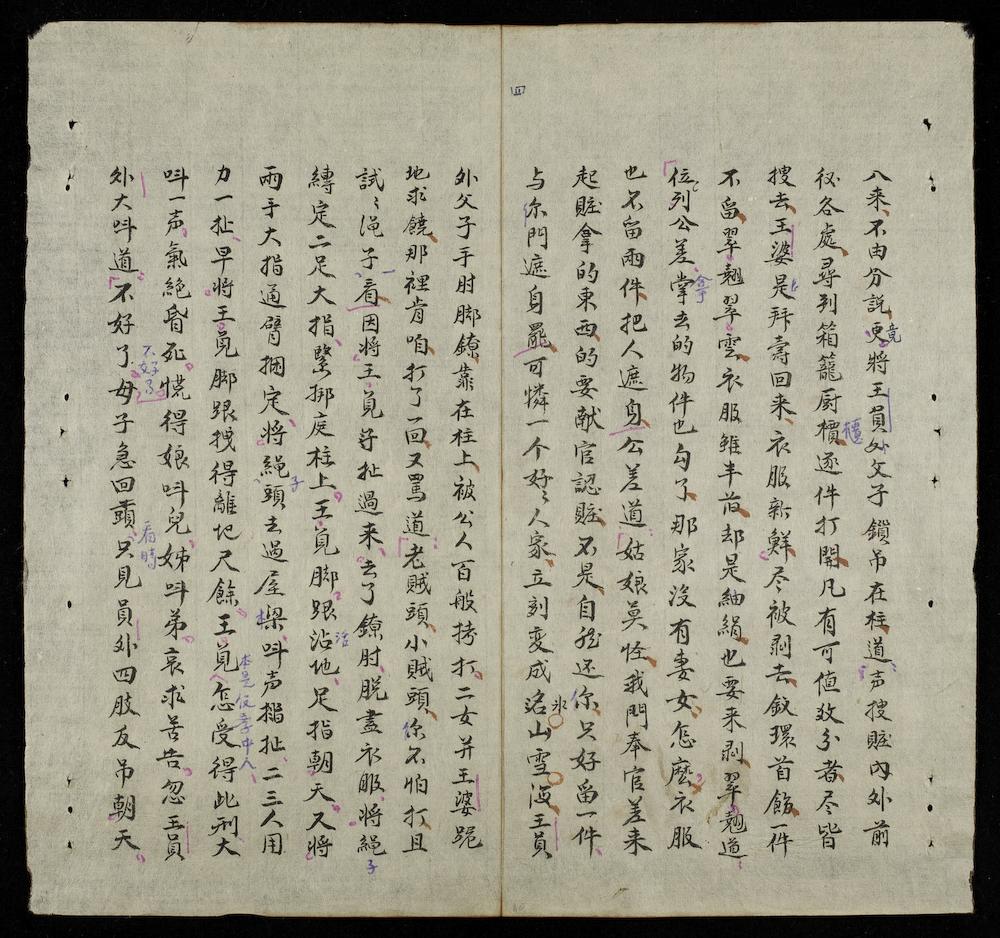 四
八来不由分説更将王員外父子鎖吊在柱道声搜賍内外前
竟
後各處尋到箱籠厨櫝逐件打開凡有可值致分者尽皆
櫃
搜去王婆是拜壽回来衣服新鮮尽被剥去釵環首餙一件
不留翠翹翠雲衣服雖半旧却是紬絹也要来剥翠翹道
位列公差掌去的物件也勾了那家没有妻女怎麽衣服
拿
也不留兩件把人遮身公差道姑娘莫怪我門奉官差来
起賍拿的東西的要献官認賍不是自己还你只好留一件
与尔門遮身罷可憐一个好〻人家立刻变成洺山雪海王員
氷
外父子手肘脚鐐靠在柱上被公人百般拷打二女并王婆跪
地求饒那裡肯咱打了一回又罵道老賊頭小賊頭你不怕打且
試〻绳子看因將王覓等扯過来去了鐐肘脱盡衣服將绳
一
子
縳定二足大指緊挷庭柱上王覓脚跟沾地足指朝天又將
兩手大指通臂捆定將縄頭去過屋梁呌声搊扯二三人用
子
力一扯早將王覓脚跟拽得離地尺餘王覓怎受得此刑大
本是仮幸中人
呌一声氣絶昏死慌得娘呌兒姊呌弟哀求苦告忽王員
外大呌道不好了母子急回頭只見員外四肢反吊朝天
不好了
看時